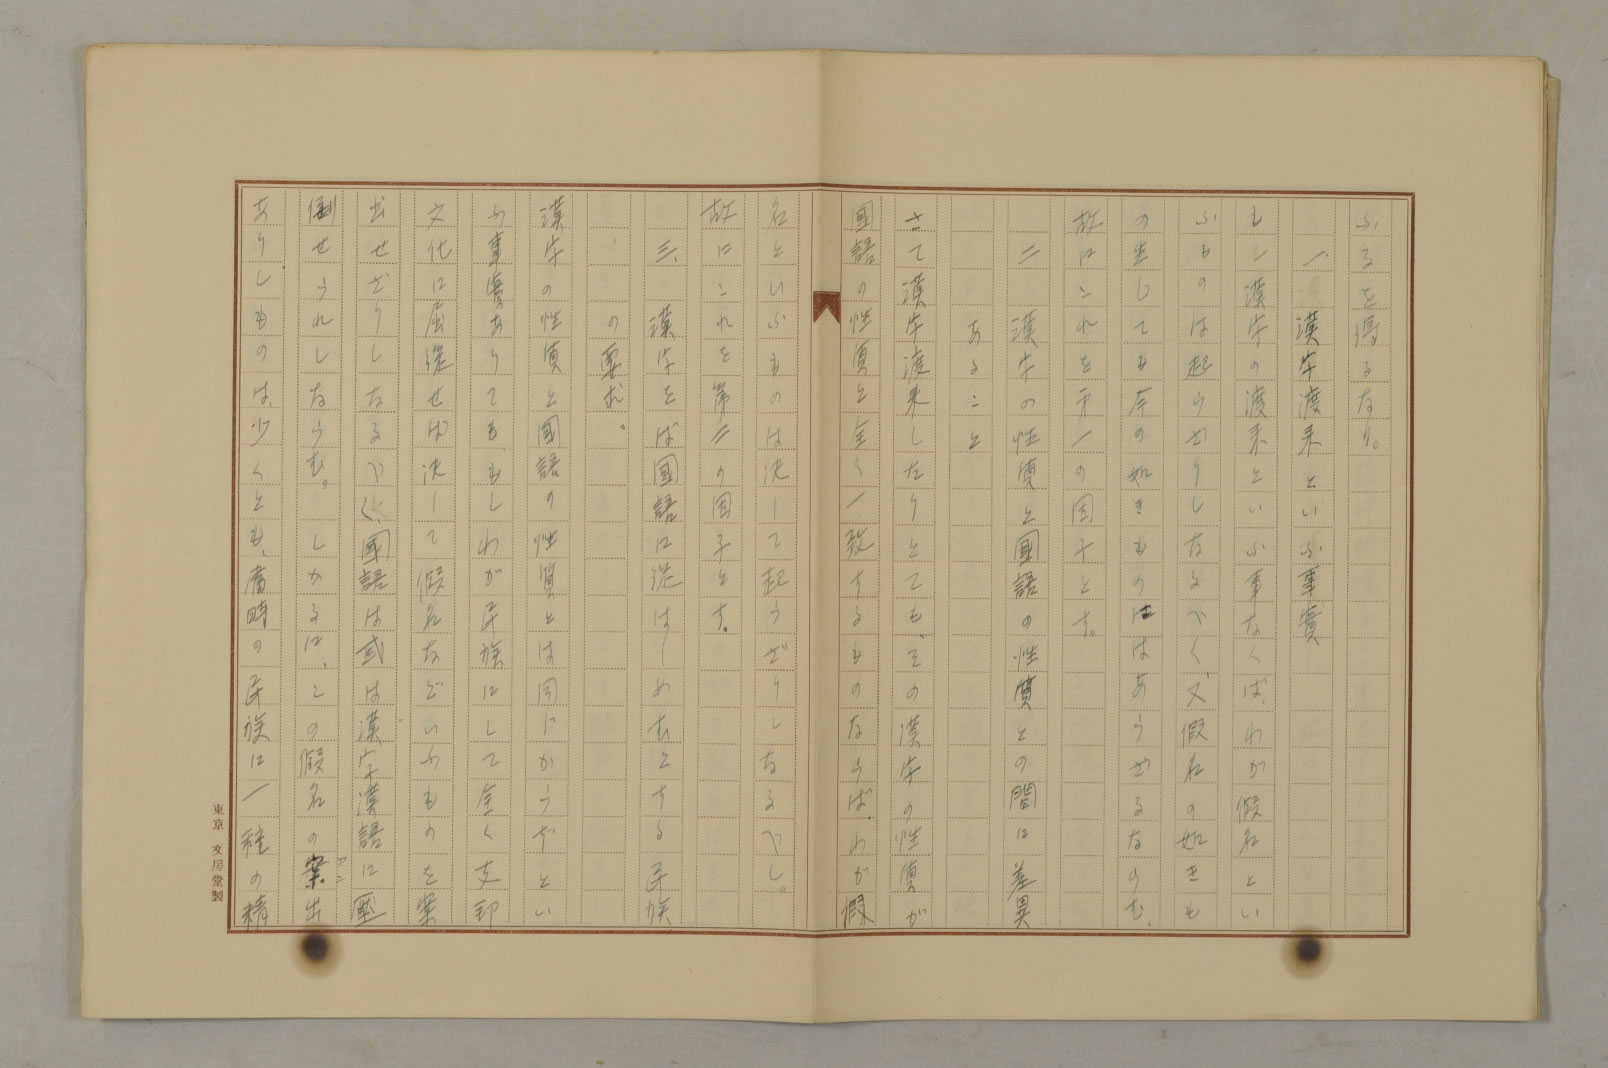 ふるを得るなり。
一、漢字渡来といふ事實
もし漢字の渡来といふ事なくば、わが假名とい
ふものは起らざりしなるべく、又假名の如きも
の生じても今の如きものにはあらざるならむ。
故にこれを第一の因子とす。
二 漢字の性質と國語の性質との間に差異
あること
さて漢字渡来したりとても、その漢字の性質が
國語の性質と全く一致するものならば、わが假
名といふものは決して起らざりしなるべし。
故にこれを第二の因子とす。
三、漢字をば國語に従はしめむとする民族
の要求。
漢字の性質と國語の性質とは同じからずとい
ふ事實ありてももしわが民族にして全く支那
文化に屈従せば決して假名などいふものを案
出せざりしなるべく、國語は或は漢字漢語に壓
倒せられしならむ。しかるに、この假名の案出
アン
ありしものは、少くとも、當時の民族に一種の精
東京 文房堂製